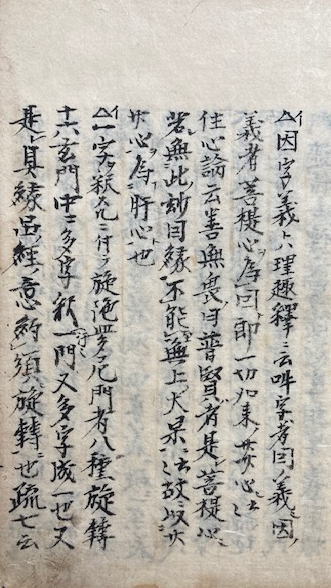 △因字義ト理趣釋ニ云吽字者因義因
義者菩提心為因即一切如来廾心法
住心論云善無畏曰普賢者是菩提心
若無此妙因縁不能無上大果法故以廾
廾心為肝心也
△一字釈ニ付テ旋陀羅尼門者八種旋轉
十六玄門中ニ多字釈一門又多字成一也又
是真縁経意約須旋轉也疏七云